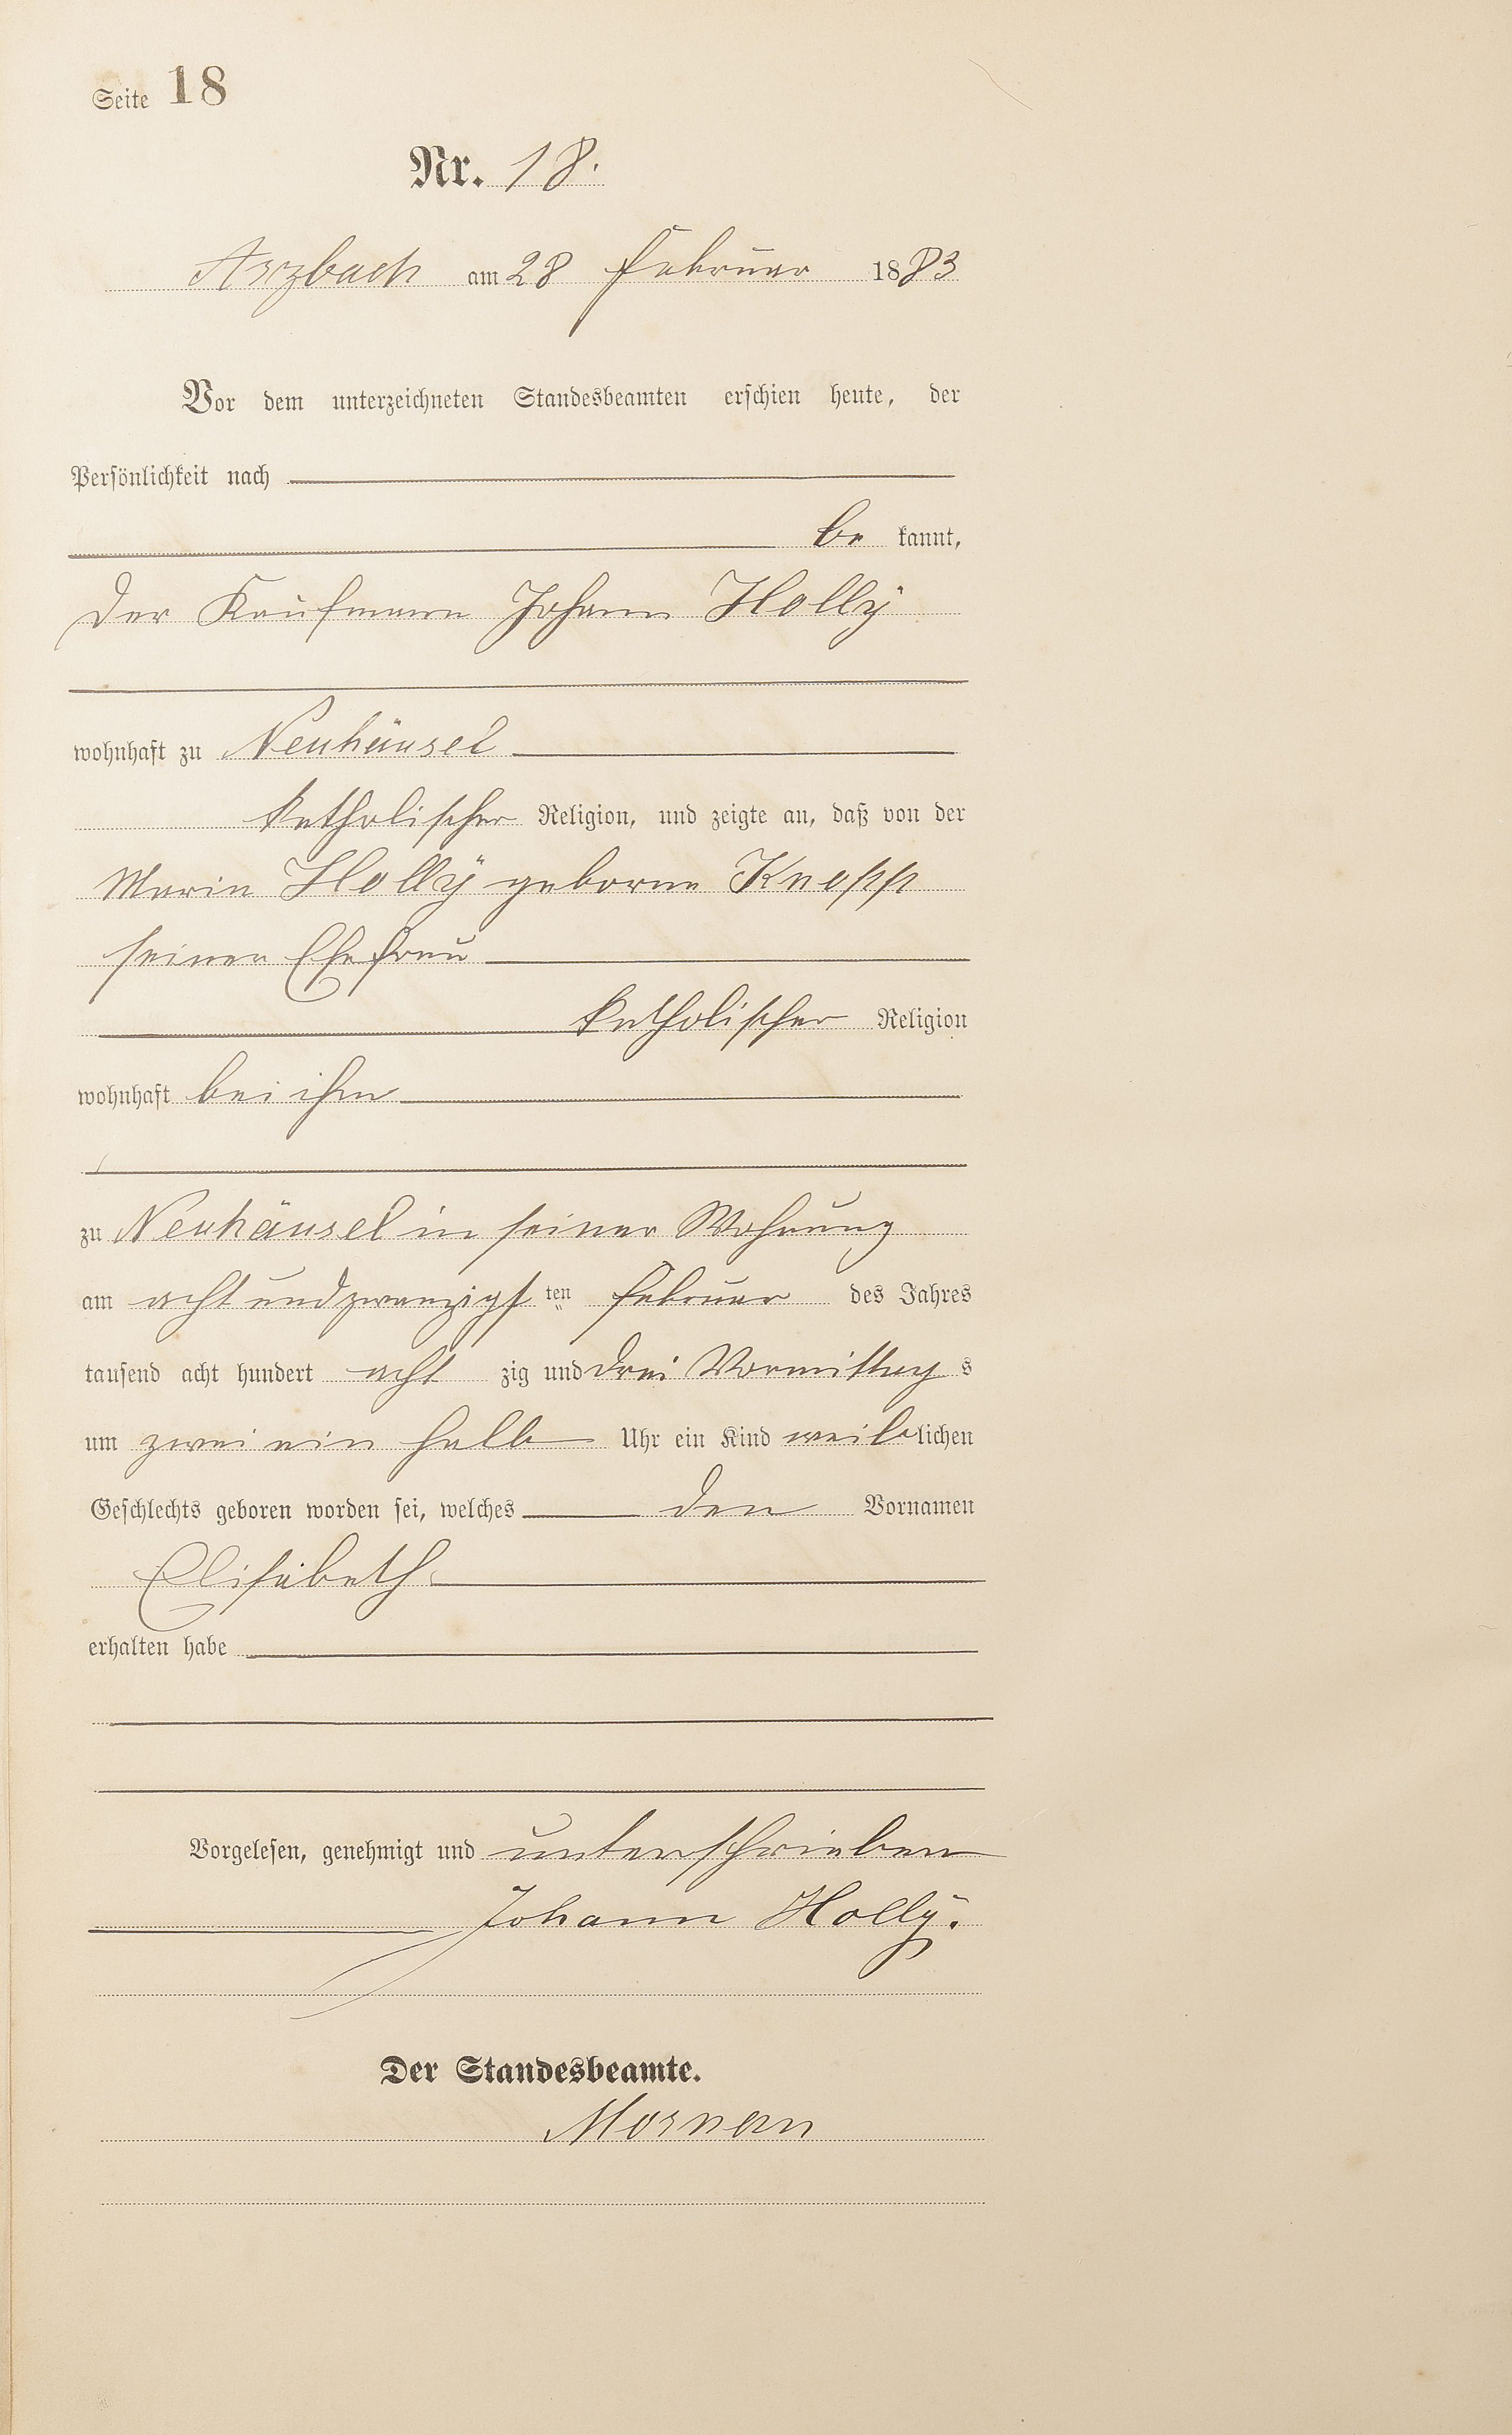 Seite 18
Nr. 18.
Arzbach am 28 Februar 1883
Vor dem unterzeichneten Standesbeamten erschien heute, der
Persönlichkeit nach
be kannt,
der Kaufmann Johann Holly
wohnhaft zu Neuhäusel
katholischer Religion, und zeigte an, daß von der
Maria Holly geborne Knopp
seiner Ehefrau
katholischer Religion
wohnhaft bei ihm
zu Neuhäusel in seiner Wohnung
am achtundzwanzigst ten Februar des Jahres
tausend acht hundert acht zig und drei Vormittag s
um zwei ein halb Uhr ein Kind weiblichen
Geschlechts geboren worden sei, welches den Vornamen
Elisabeth
erhalten habe
Vorgelesen, genehmigt und unterschrieben
Johann Holly.
Der Standesbeamte.